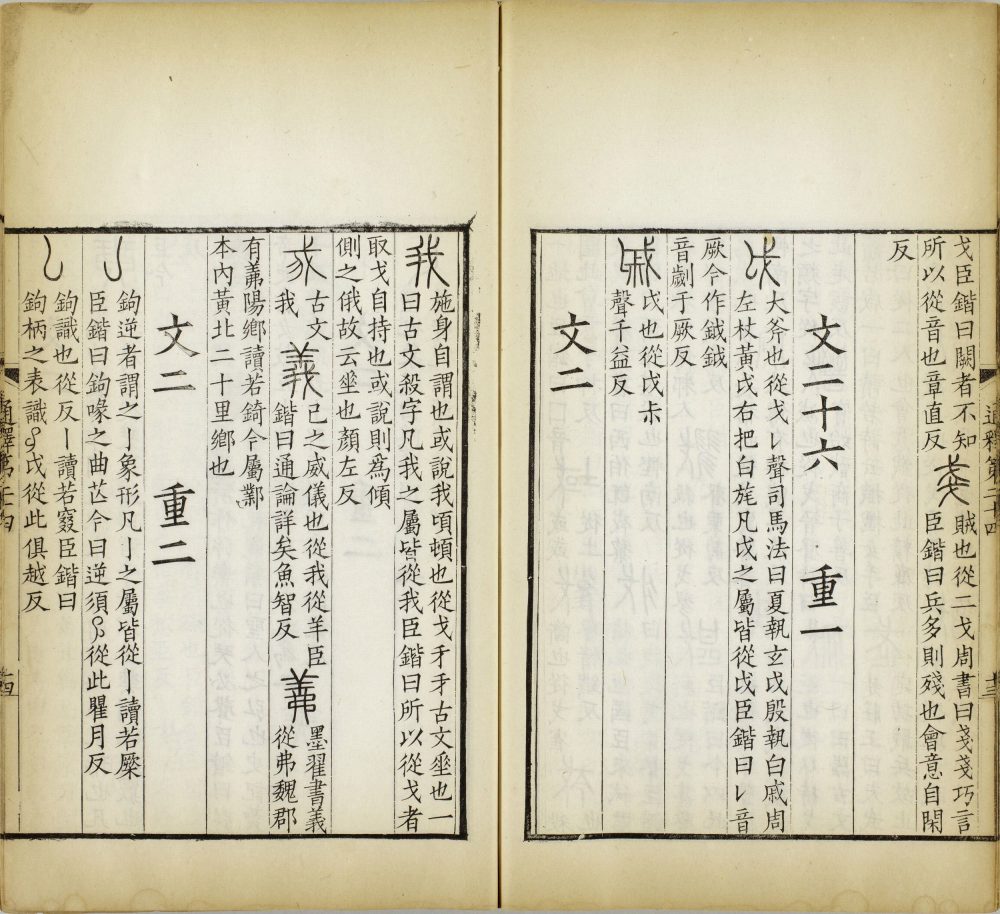 戈臣鍇曰闕者不知戔賊也從二戈周書曰戔戔巧言
所以從音也章直反臣鍇曰兵多則殘也會意自閑
反
文二十六 重一
戉大斧也從戈𠄌聲司馬法曰夏執玄戉殷執白戚周
左杖黃戉右把白旄凡戉之屬皆從戉臣鍇曰𠄌音
厥今作鉞鉞
音劌于厥反
戚戉也從戉尗
聲千益反
文二
通釋第二十四
十三
我施身自謂也或說我頃頓也從戈𠂹𠂹古文𡍮也一
曰古文殺字凡我之屬皆從我臣鍇曰所以從戈者
取戈自持也或說則為傾
側之俄故云𡍮也顏左反
古文義己之威儀也從我從羊臣羛墨翟書義
我鍇曰通論詳矣魚智反從弗魏郡
有羛陽鄉讀若錡今屬鄴
本內黃北二十里鄉也
文二 重二
亅鉤逆者謂之亅象形凡亅之屬皆從亅讀若橜
臣鍇曰鉤喙之曲芒今曰逆須從此瞿月反
𠄌鉤識也從反亅讀若窡臣鍇曰
鉤柄之表識戉從此俱越反
通釋第二十四
十四